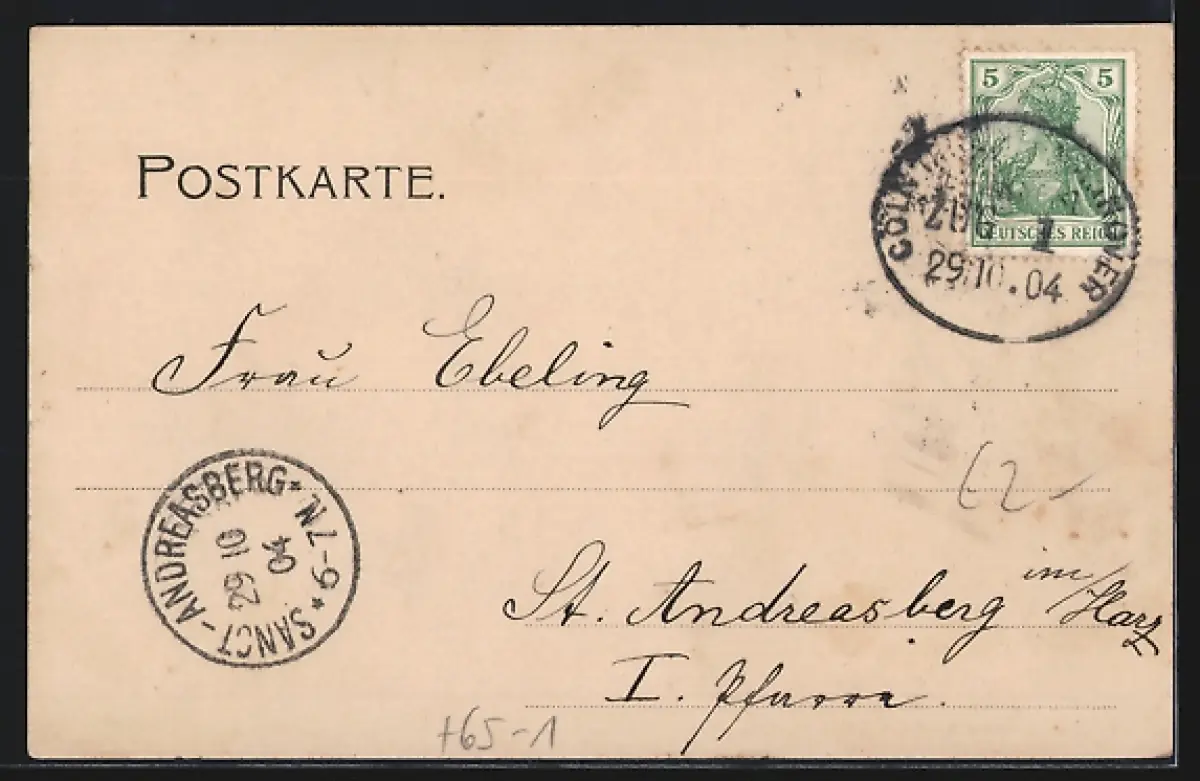 5 5
POSTKARTE.
DEUTSCHES REICH
CÖLN HANNOVER
ZUG 1
29.10.04
Frau Ebeling
62-
SANCT-ANDREASBERG * 6-7N *
29 10
04
St. Andreasberg im Harz
I. Pfarre.
+65-1